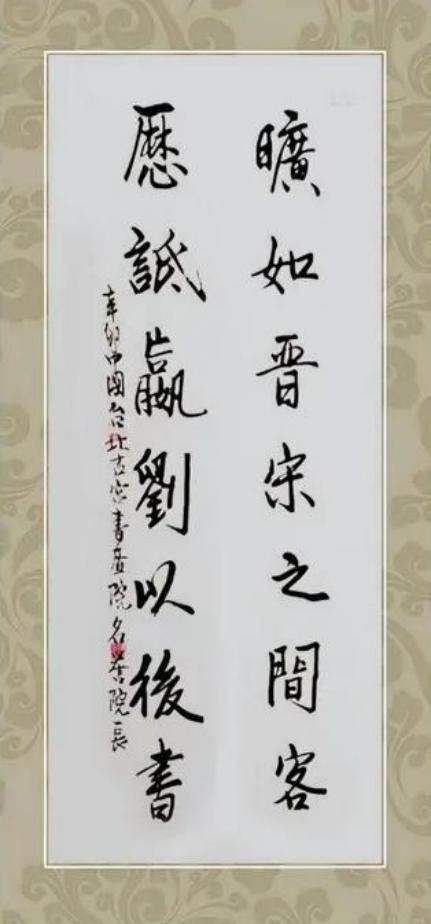 曠如晋宋之間客
歷詆嬴劉以後書
辛卯中國台北故宮書畫院名譽院長